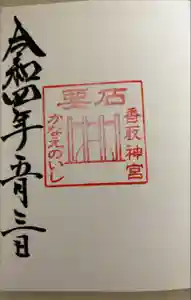 要石
香取神宮
かなめのいし
令和四年五月三日